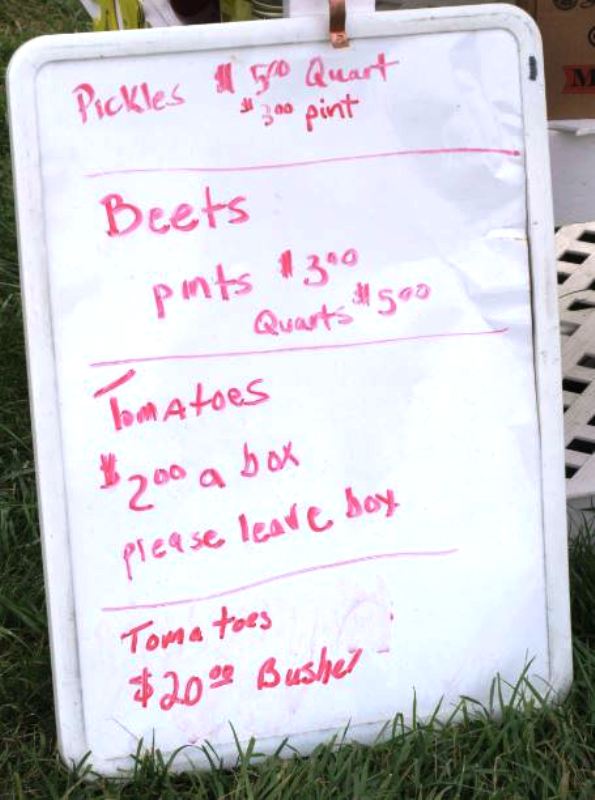 Pickles $5.00 Quart
$3.00 pint
Beets
pints $3.00
Quarts $5.00
Tomatoes
$2.00 a box
please leave box
Tomatoes
$20.00 Bushel